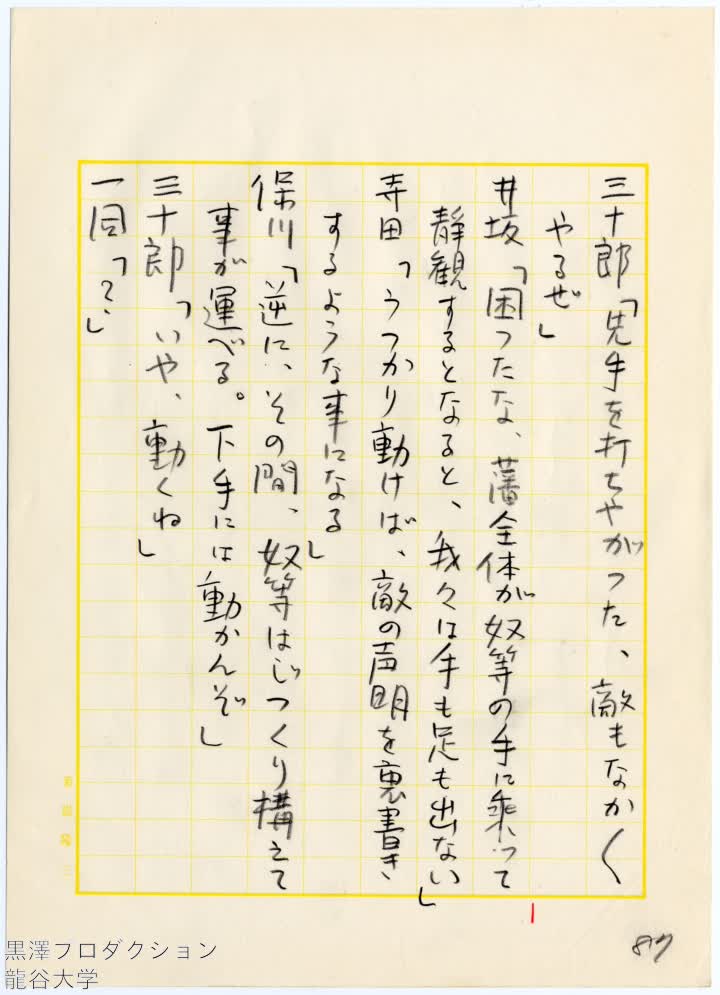 三十郎「先手を打ちやがつた、敵もなか〱
やるぜ」
井坂「困つたな、藩全体が奴等の手に乗つて
静観するとなると、我々は手も足も出ない」
寺田「うつかり動けば、敵の声明を裏書き
するような事になる」
保川「逆に、その間、奴等はじつくり構えて
事が運べる。下手には動かんぞ」
三十郎「いや、動くね」
一同「？」
87
黒澤プロダクション
龍谷大学